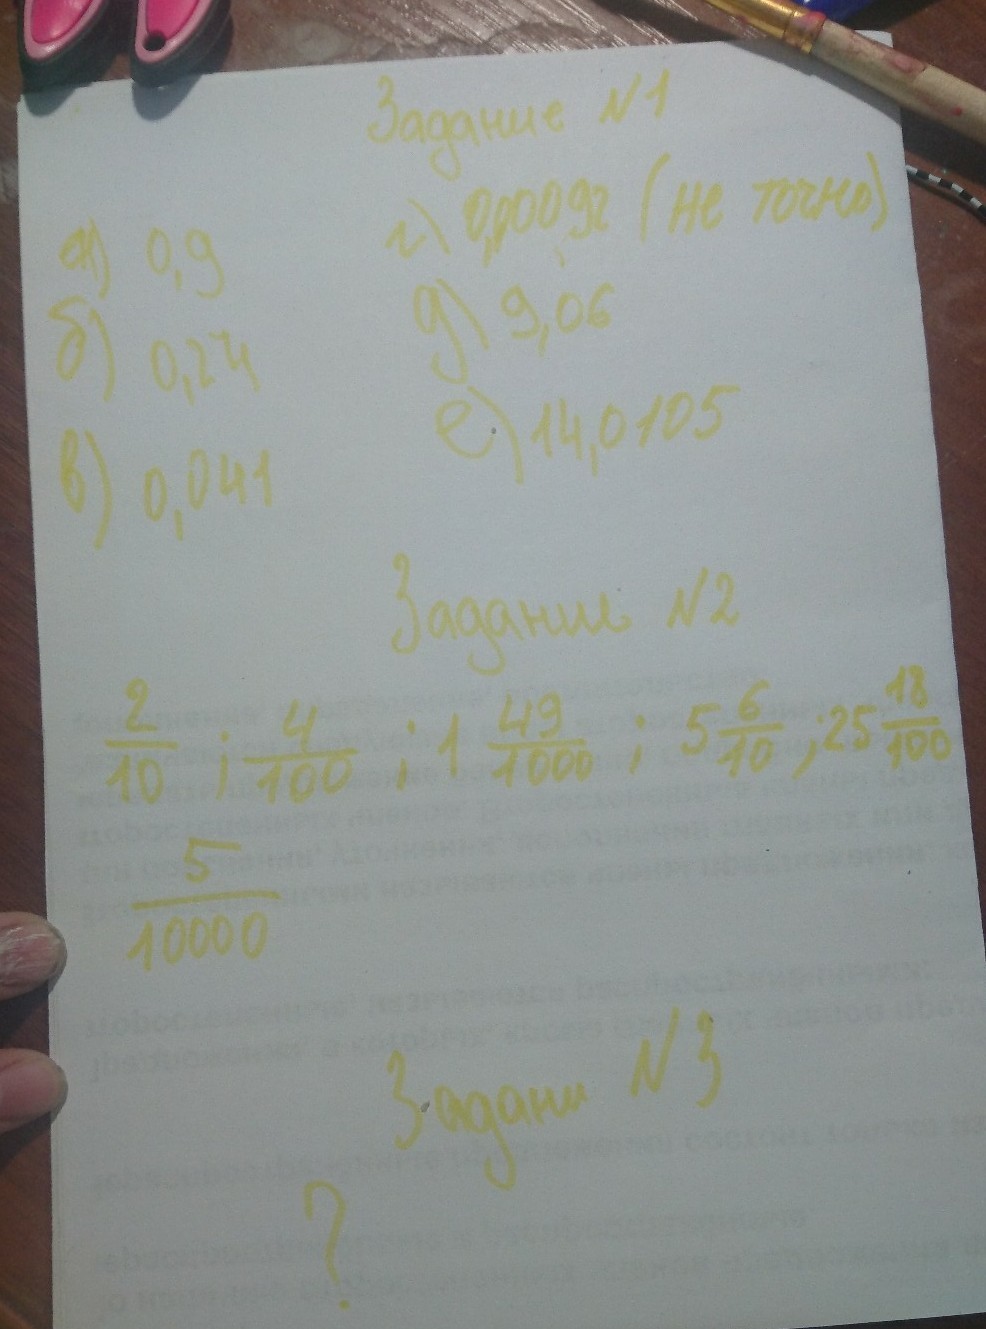 Задание №1
а) 0,9
б) 0,24
в) 0,041
г) 0,0092 (не точно)
д) 9,06
е) 14,0105
Задание №2
2/10 ; 4/100 ; 1 49/1000 ; 5 6/10 ; 25 18/100
5/10000
Задани №3
?